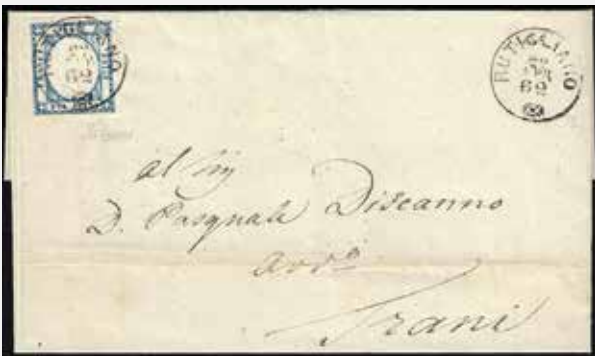 RUTIGLIANO
62
RUTIGLIANO
62
al Sig
D. Pasquale Discanno
Avv.º
Trani